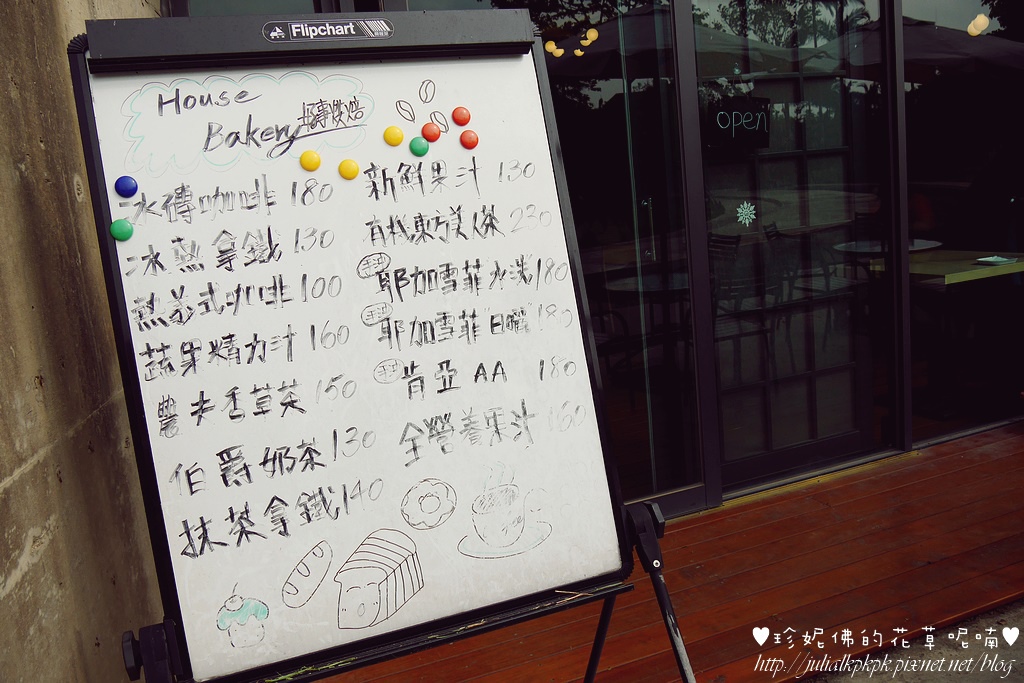 Flipchart
House
Bakery 好事烘焙
冰磚咖啡 180
冰熱拿鐵 130
熱美式咖啡 100
蔬果精力汁 160
農夫香草茶 150
伯爵奶茶 130
抹茶拿鐵 140
新鮮果汁 130
有機東方美人茶 220
手沖 耶加雪菲水洗 180
手沖 耶加雪菲"日曬" 180
手沖 肯亞AA 180
全營養果汁 160
open
♥珍妮佛的花草呢喃♥
http://julialkpkpk.pixnet.net/blog